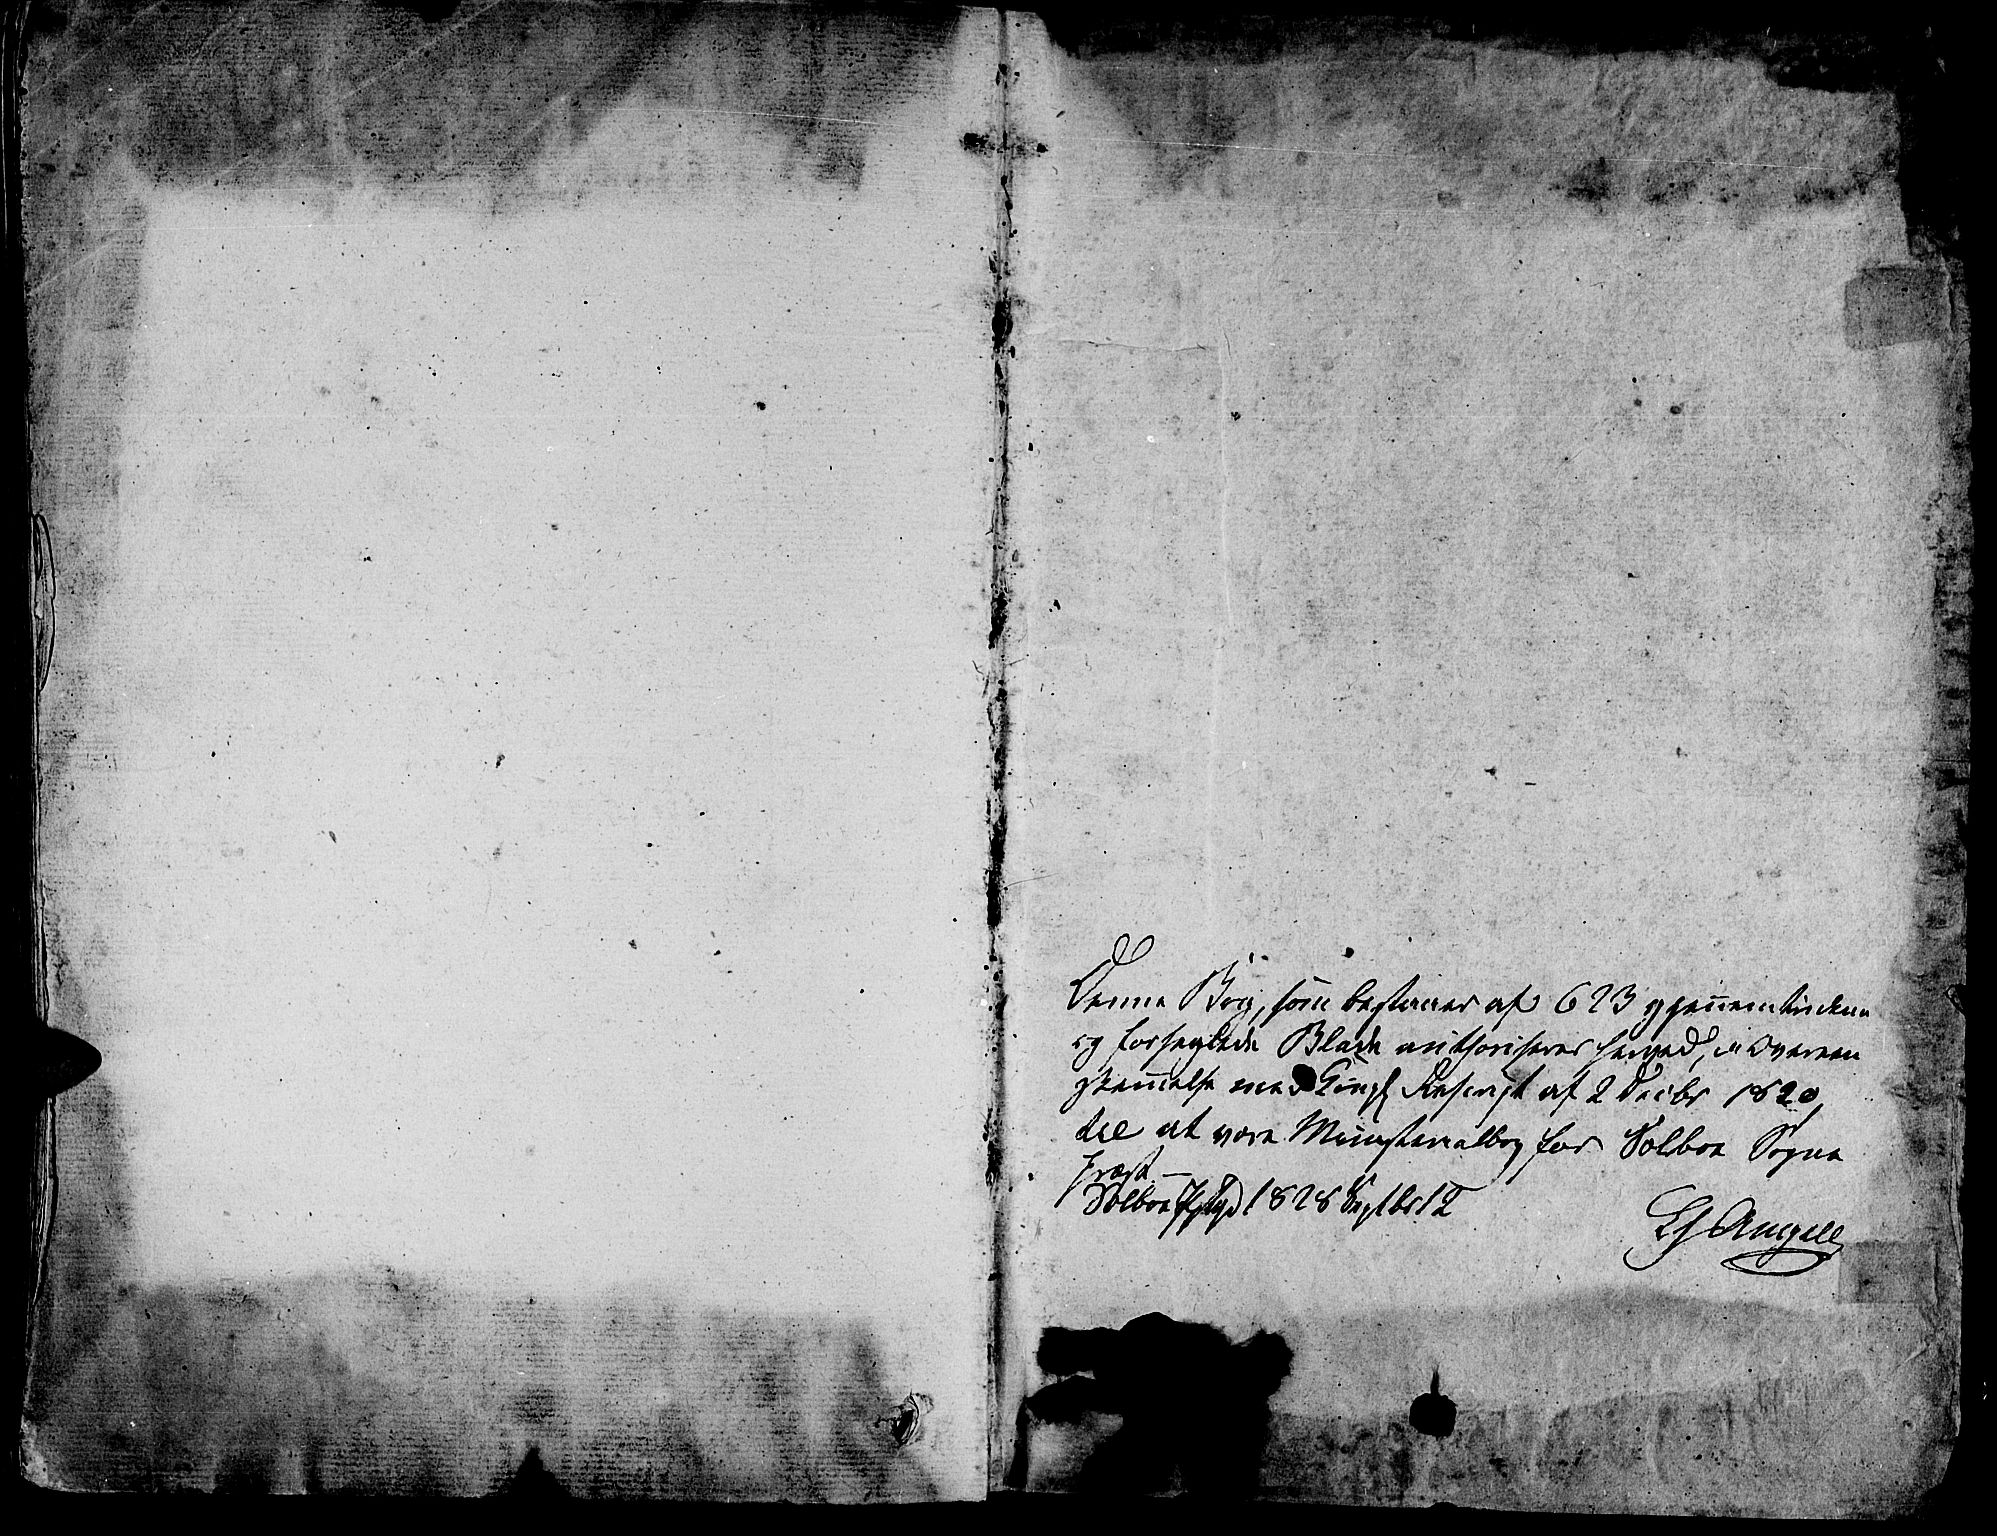 Denne Bog, som bestaaer af 623 gjennemtrukne
og forseglede Blade authoriseres herved, i Overeens
stemmelse med Kongl Rescript af 2 Decbr 1820,
til at være Ministerialbog for Selboe Sogne
Præst.—
Selboe 1828 Septbr 12
Angell